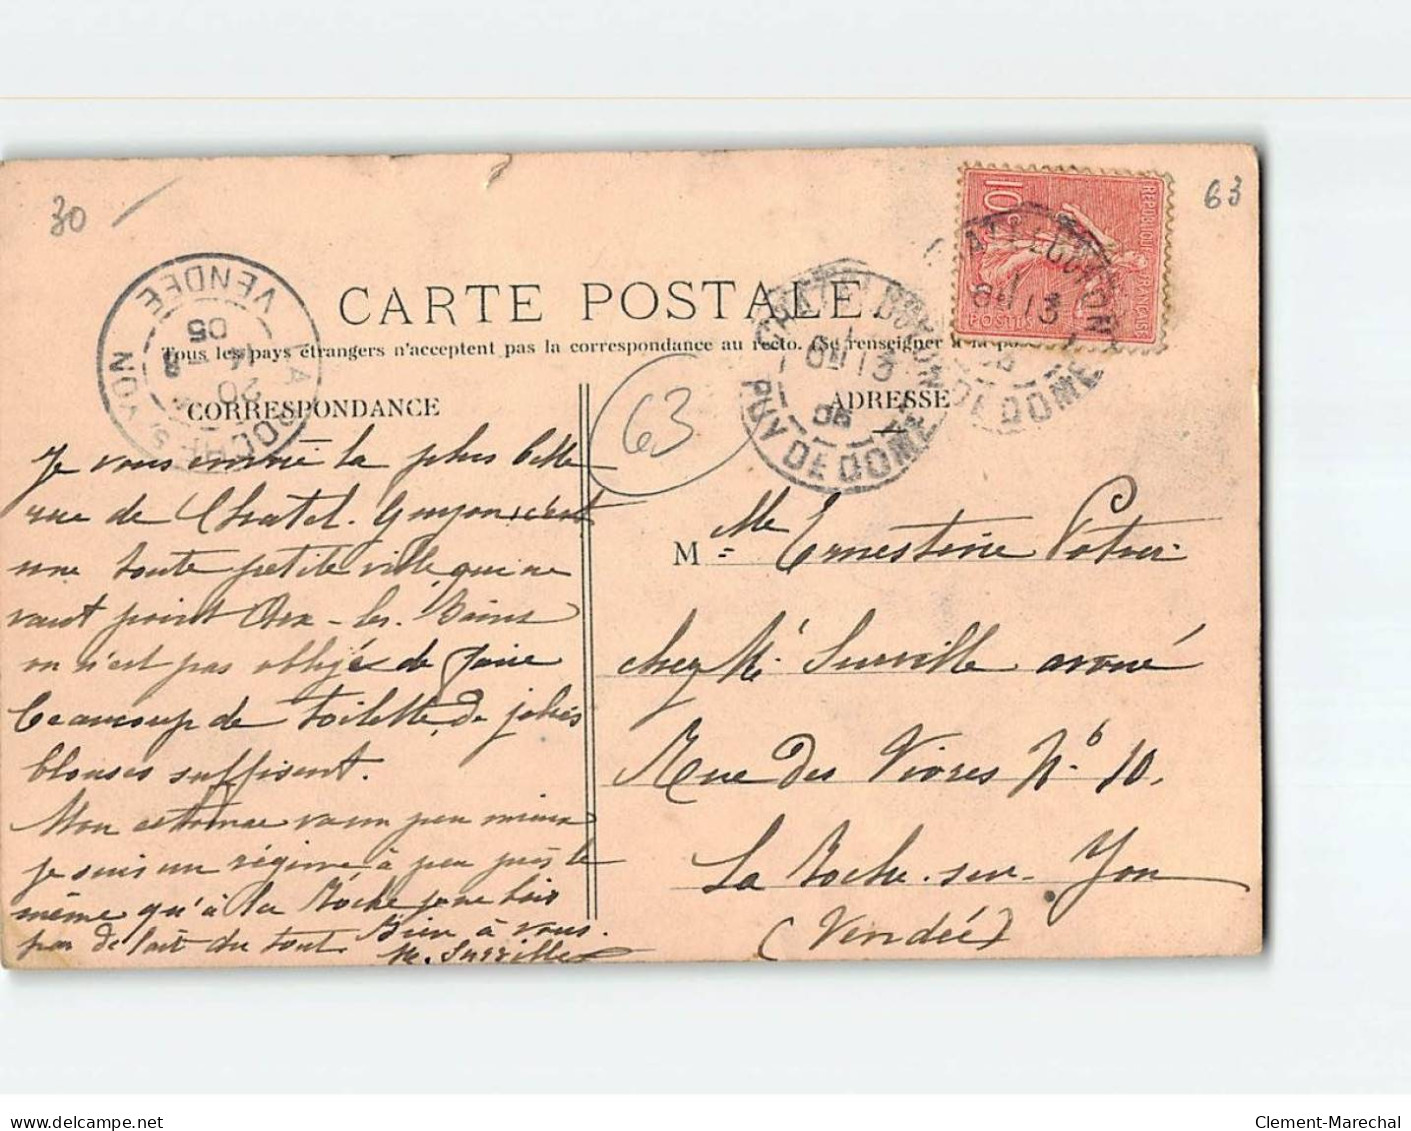 30
63
CARTE POSTALE
Tous les pays étrangers n'acceptent pas la correspondance au recto. (Se renseigner à la poste)
CORRESPONDANCE
ADRESSE
63
LA ROCHE S. YON
VENDÉE
20
05
CHATEL GUYON
PUY DE DOME
13
CHATEL GUYON
PUY DE DOME
13
10 c
REPUBLIQUE FRANCAISE
POSTES
Je vous envoie la plus belle
rue de Chatel-Guyon, c'est
une toute petite ville qui ne
vaut point Aix-les-Bains
on n'est pas obligée de faire
beaucoup de toilette, de jolies
blouses suffisent.
Mon estomac va un peu mieux
je suis un régime à peu près le
même qu'à la Roche je ne bois
pas de lait du tout. Bien à vous.
M. Surville
M Elle Ernestine
chez Me Surville avoué
Rue des Vivres No 10.
La Roche-sur-Yon
(Vendée)
Clement-Marechal